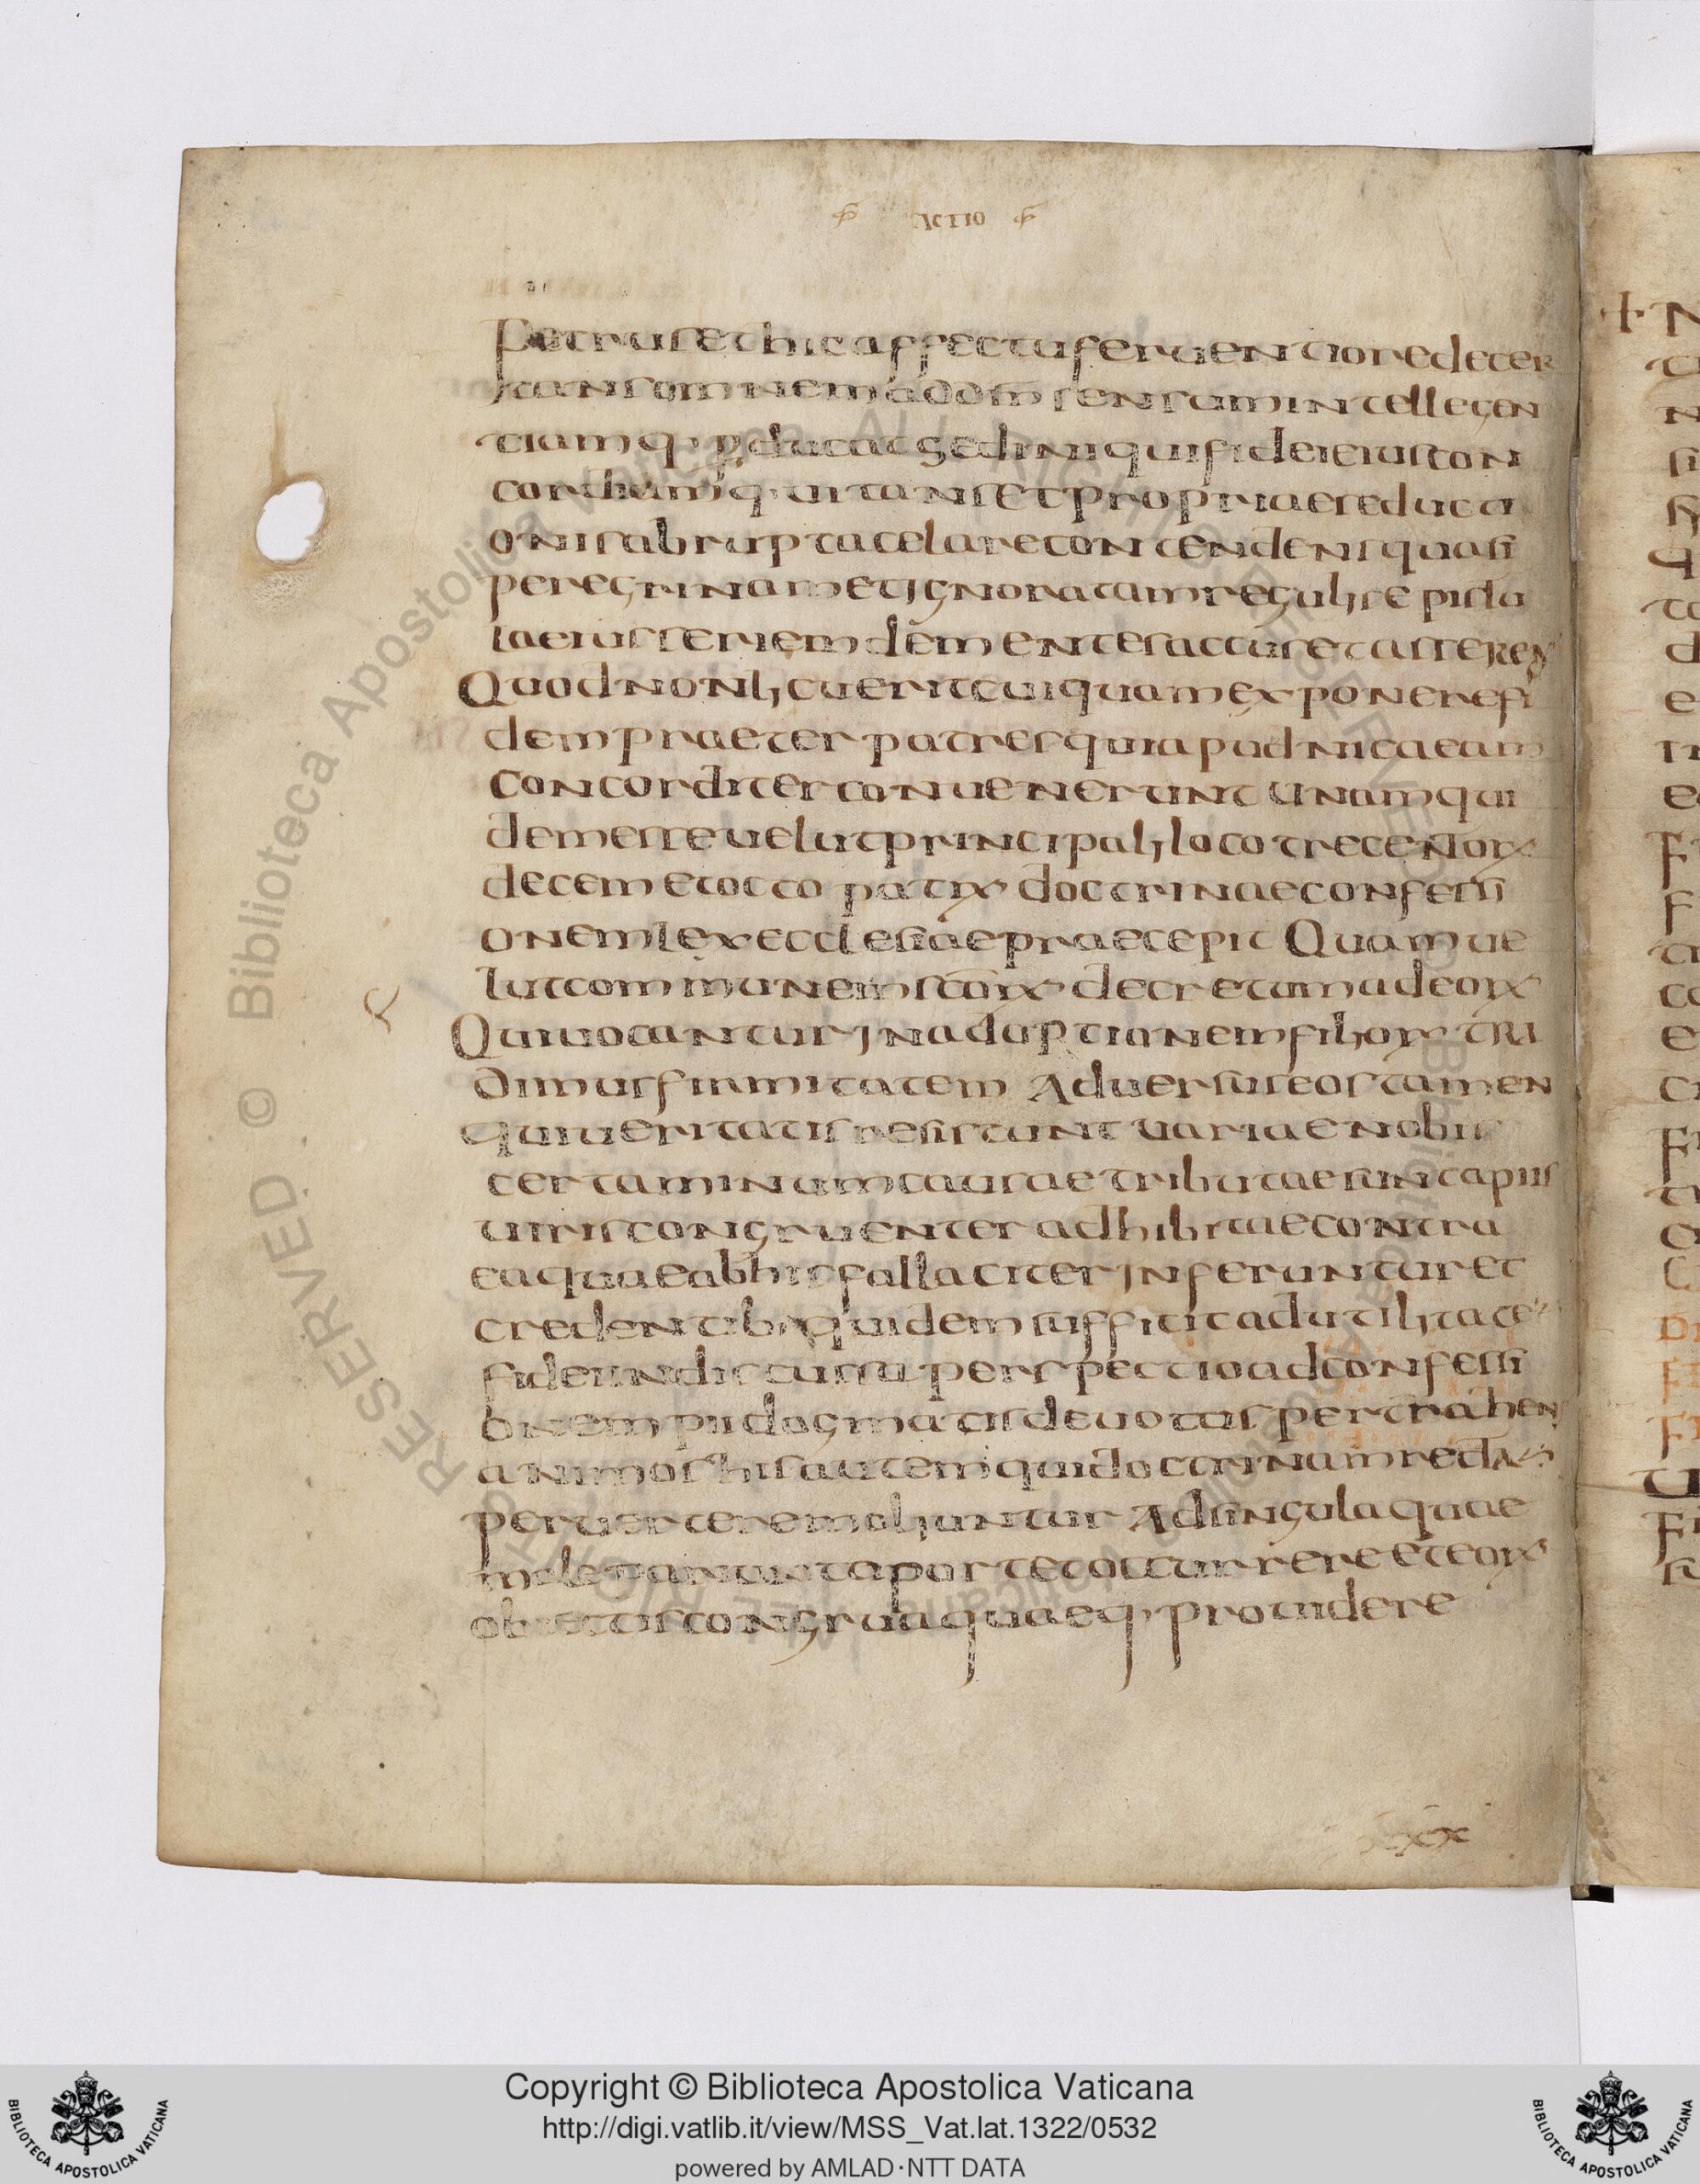 ACTIO
Petrus et hic affectu feruentiore decer
tans omnem ad dom̄ sensum intellegen
tiamq· p̱ducat Sed iniqui fidei eius con
cordiam q· uitans et propriae seducti
onis abrupta celare contendens quasi
peregrinam et ignoratam regulis epistu
lae eius seriem dementes accuset asseren
Quod non licuerit cuiquam exponere fi
dem praeter patres qui apud nicaeam
concorditer conuenerunt Unam qui
dem esse uelut principali loco trecentorꝝ
decem et octo patrꝝ doctrinae confessi
onem lex ecclesiae praecepit Quam ue
lut communem sc̄orꝝ decretum ad eorꝝ
Qui uocantur in adoptionem filiorꝝ tra
dimus firmitatem Aduersus eos tamen
qui ueritatis resistunt uariae nobis
certaminum causae tributae sunt a piis
uiris congruenter adhibitae contra
ea quae ab his fallaciter inferuntur et
credentibꝰ quidem sufficit ad utilitate
fidei indiscussa perspectio ad confessi
onem pii dogmatis deuotus pertrahens
animos his autem qui doctrinam rectā
peruertere moliuntur Ad singula quae
male pariunt aportet occurrere et eorꝝ
obiectis congrua quaeq· prouidere
xxx
Copyright © Biblioteca Apostolica Vaticana
http://digi.vatlib.it/view/MSS_Vat.lat.1322/0532
powered by AMLAD·NTT DATA